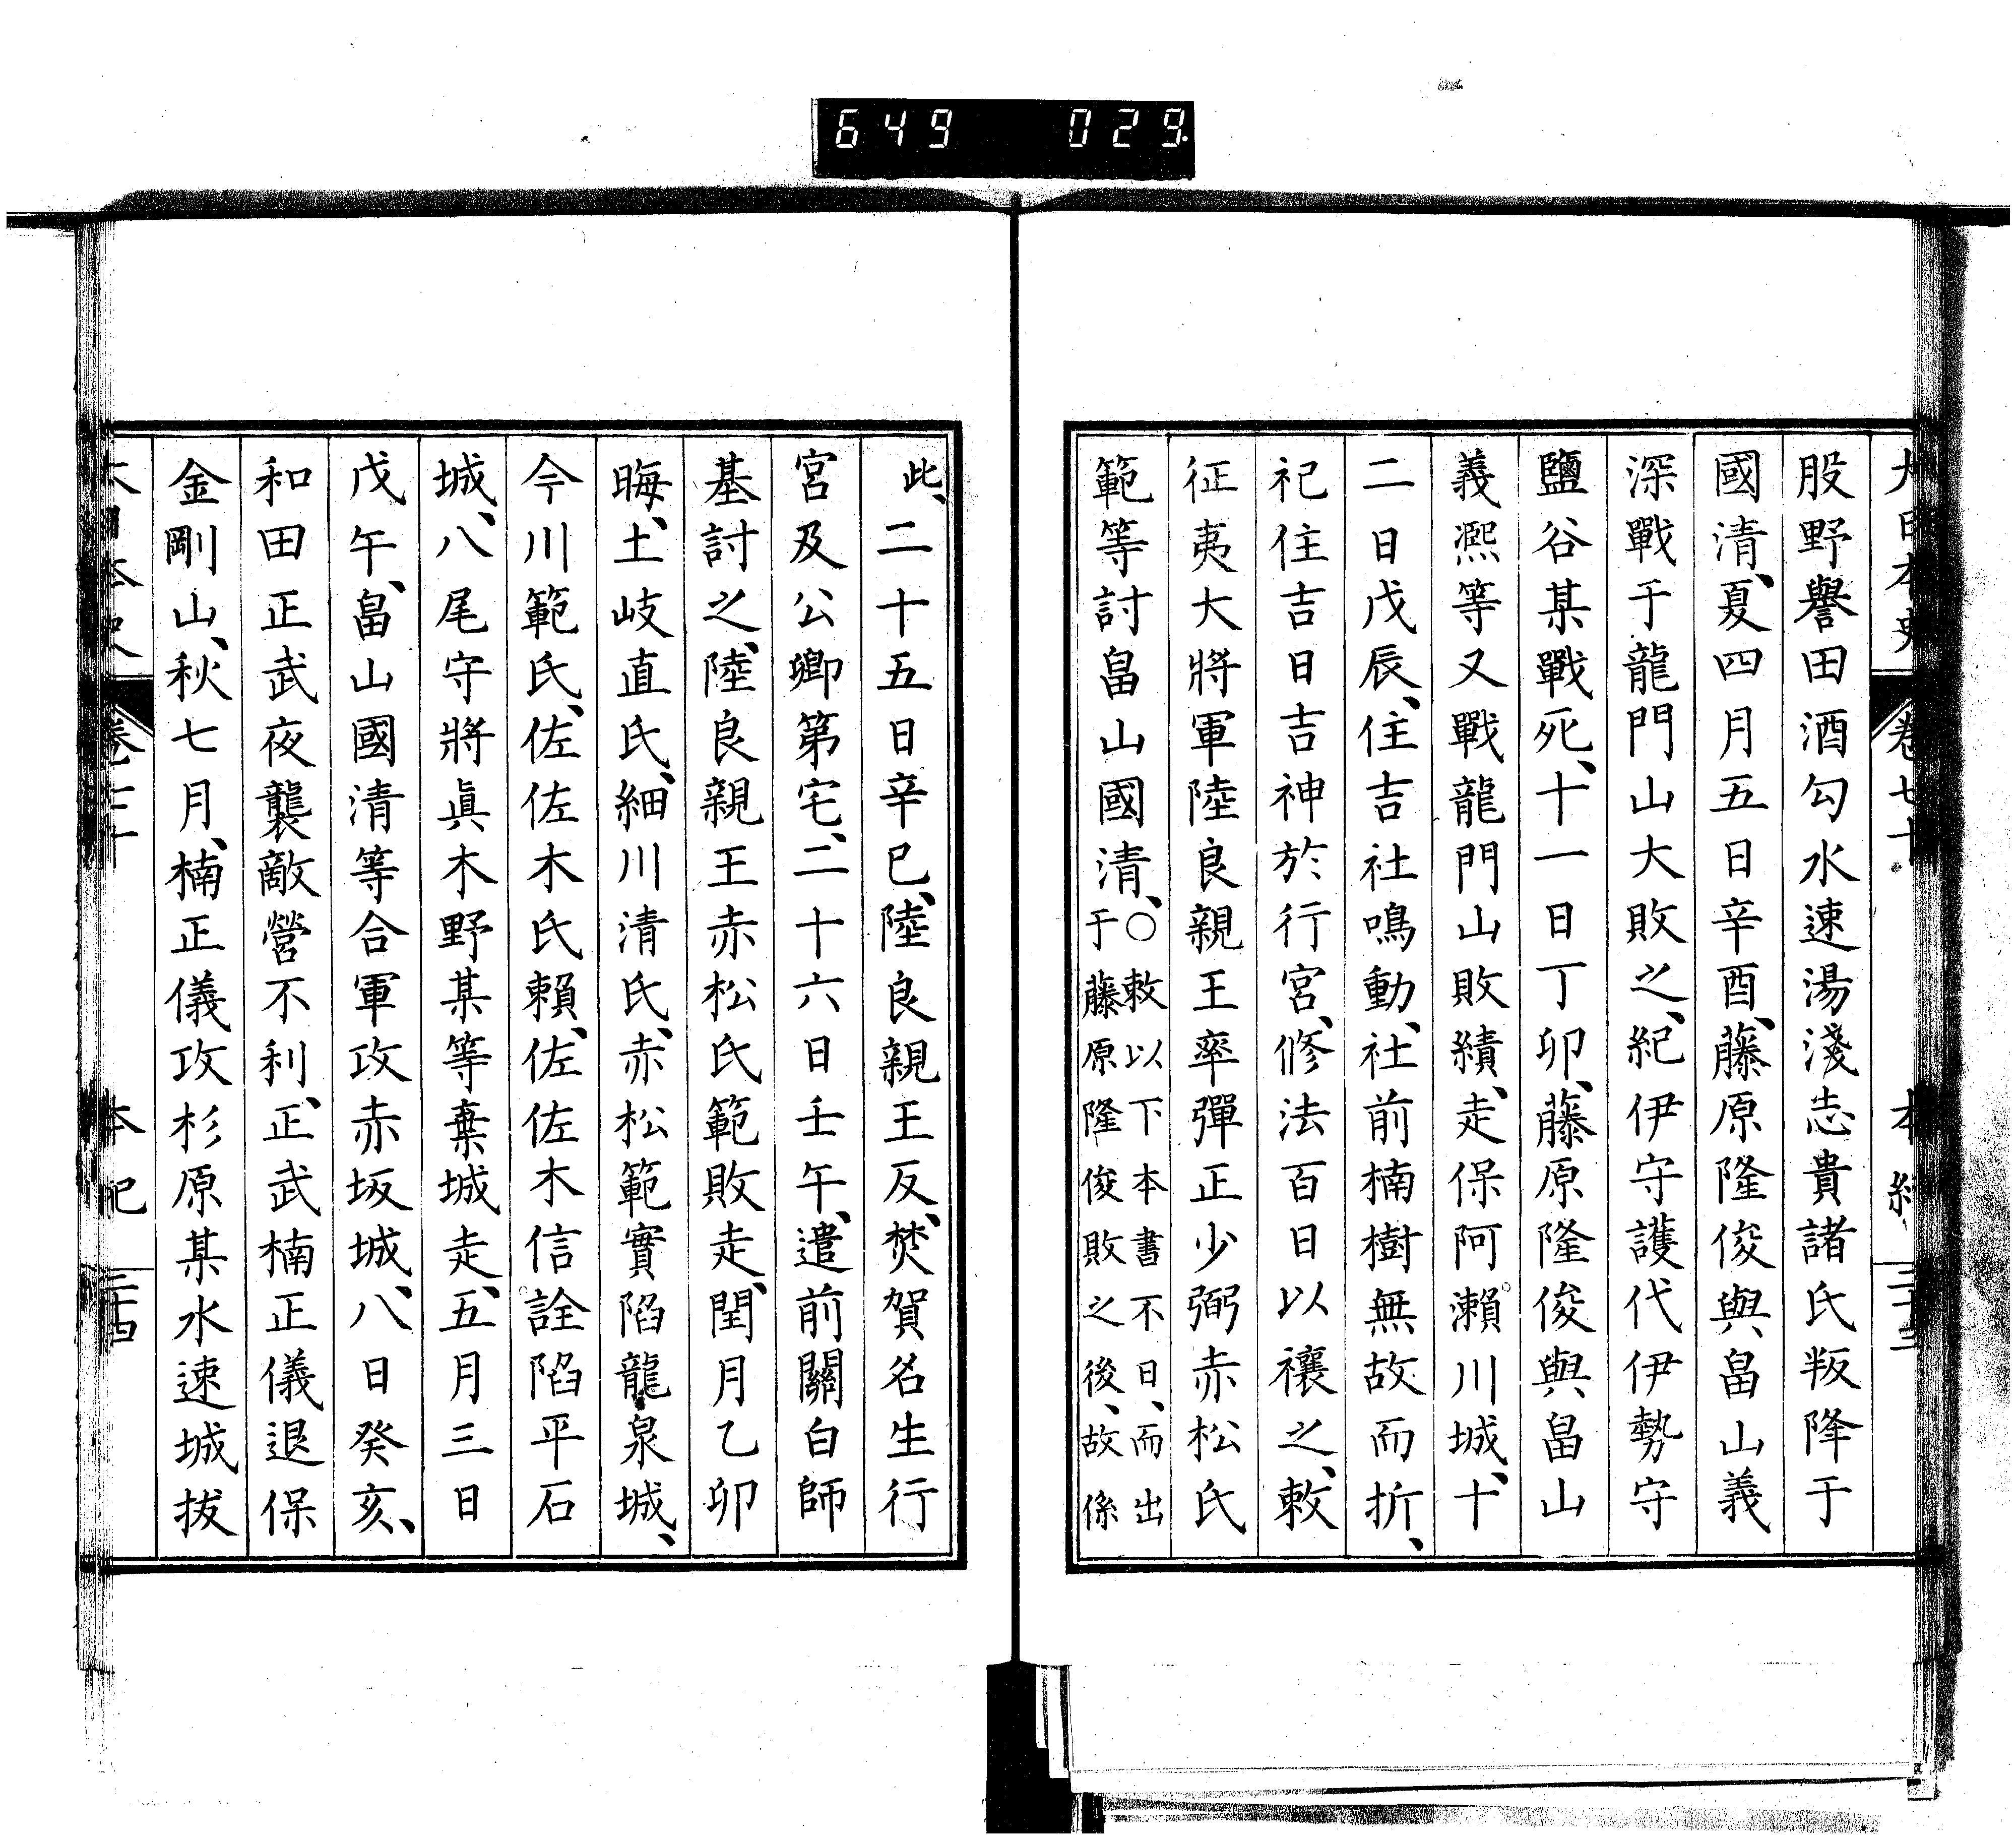 649 029
大日本史 卷七十 本紀 二十三
股野譽田酒勾水速湯淺志貴諸氏叛降于
國清、夏四月五日辛酉、藤原隆俊與畠山義
深戰于龍門山大敗之、紀伊守護代伊勢守
鹽谷某戰死、十一日丁卯、藤原隆俊與畠山
義凞等又戰龍門山敗績、走保阿瀨川城、十
二日戊辰、住吉社鳴動、社前楠樹無故而折、
祀住吉日吉神於行宮、修法百日以禳之、敕
征夷大將軍陸良親王率彈正少弼赤松氏
範等討畠山國清、○敕以下本書不日、而出
于藤原隆俊敗之後、故係
此、二十五日辛巳、陸良親王反、焚賀名生行
宮及公卿第宅、二十六日壬午、遣前關白師
基討之、陸良親王赤松氏範敗走、閏月乙卯
晦、土岐直氏、細川清氏、赤松範實陷龍泉城、
今川範氏、佐佐木氏賴、佐佐木信詮陷平石
城、八尾守將眞木野某等棄城走、五月三日
戊午、畠山國清等合軍攻赤坂城、八日癸亥、
和田正武夜襲敵營不利、正武楠正儀退保
金剛山、秋七月、楠正儀攻杉原某水速城拔
大日本史 卷七十 本紀 二十四